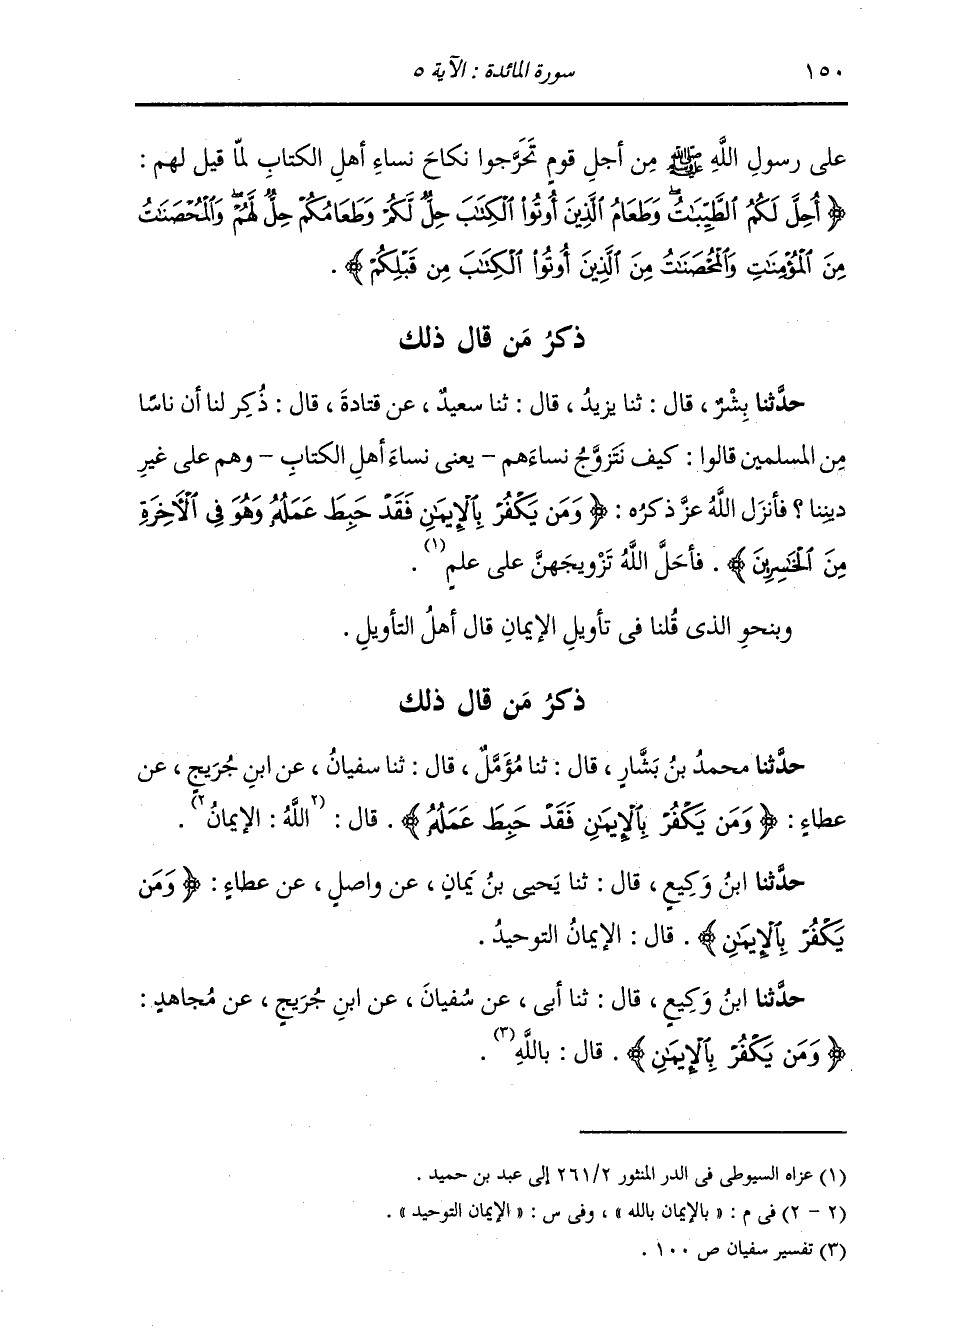 ١٥٠ سورة المائدة : الآية ٥
على رسولِ اللَّهِ ﷺ مِن أجلِ قومٍ تَحَرَّجوا نكاحَ نساءِ أهلِ الكتابِ لمّا قيل لهم :
﴿ أُحِلَّ لَكُمُ ٱلطَّيِّبَٰتُۖ وَطَعَامُ ٱلَّذِينَ أُوتُوا۟ ٱلْكِتَٰبَ حِلٌّ لَّكُمْ وَطَعَامُكُمْ حِلٌّ لَّهُمْۖ وَٱلْمُحْصَنَٰتُ
مِنَ ٱلْمُؤْمِنَٰتِ وَٱلْمُحْصَنَٰتُ مِنَ ٱلَّذِينَ أُوتُوا۟ ٱلْكِتَٰبَ مِن قَبْلِكُمْ ﴾ .
ذكرُ مَن قال ذلك
حدَّثنا بِشْرٌ ، قال : ثنا يزيدُ ، قال : ثنا سعيدٌ ، عن قتادةَ ، قال : ذُكِر لنا أن ناسًا
مِن المسلمين قالوا : كيف نَتَزوَّجُ نساءَهم – يعنى نساءَ أهلِ الكتابِ – وهم على غيرِ
دينِنا ؟ فأنزَل اللَّهُ عزَّ ذكرُه : ﴿ وَمَن يَكْفُرْ بِٱلْإِيمَٰنِ فَقَدْ حَبِطَ عَمَلُهُۥ وَهُوَ فِى ٱلْأَخِرَةِ
مِنَ ٱلْخَٰسِرِينَ ﴾ . فأحَلَّ اللَّهُ تَزْويجَهنَّ على علمٍ(١) .
وبنحوِ الذى قُلنا فى تأويلِ الإيمانِ قال أهلُ التأويلِ .
ذكرُ مَن قال ذلك
حدَّثنا محمدُ بنُ بَشَّارٍ ، قال : ثنا مُؤَمَّلٌ ، قال : ثنا سفيانُ ، عن ابنِ جُرَيجٍ ، عن
عطاءٍ : ﴿ وَمَن يَكْفُرْ بِٱلْإِيمَٰنِ فَقَدْ حَبِطَ عَمَلُهُۥ ﴾ . قال : (٢اللَّهُ : الإيمانُ٢) .
حدَّثنا ابنُ وَكِيعٍ ، قال : ثنا يَحيى بنُ يَمانٍ ، عن واصلٍ ، عن عطاءٍ : ﴿ وَمَن
يَكْفُرْ بِٱلْإِيمَٰنِ ﴾ . قال : الإيمانُ التوحيدُ .
حدَّثنا ابنُ وَكِيعٍ ، قال : ثنا أبى ، عن سُفيانَ ، عن ابنِ جُرَيجٍ ، عن مُجاهدٍ :
﴿ وَمَن يَكْفُرْ بِٱلْإِيمَٰنِ ﴾ . قال : باللَّهِ(٣) .
(١) عزاه السيوطى فى الدر المنثور ٢٦١/٢ إلى عبد بن حميد .
(٢ – ٢) فى م : « بالإيمان بالله » ، وفى س : « الإيمان التوحيد » .
(٣) تفسير سفيان ص ١٠٠ .